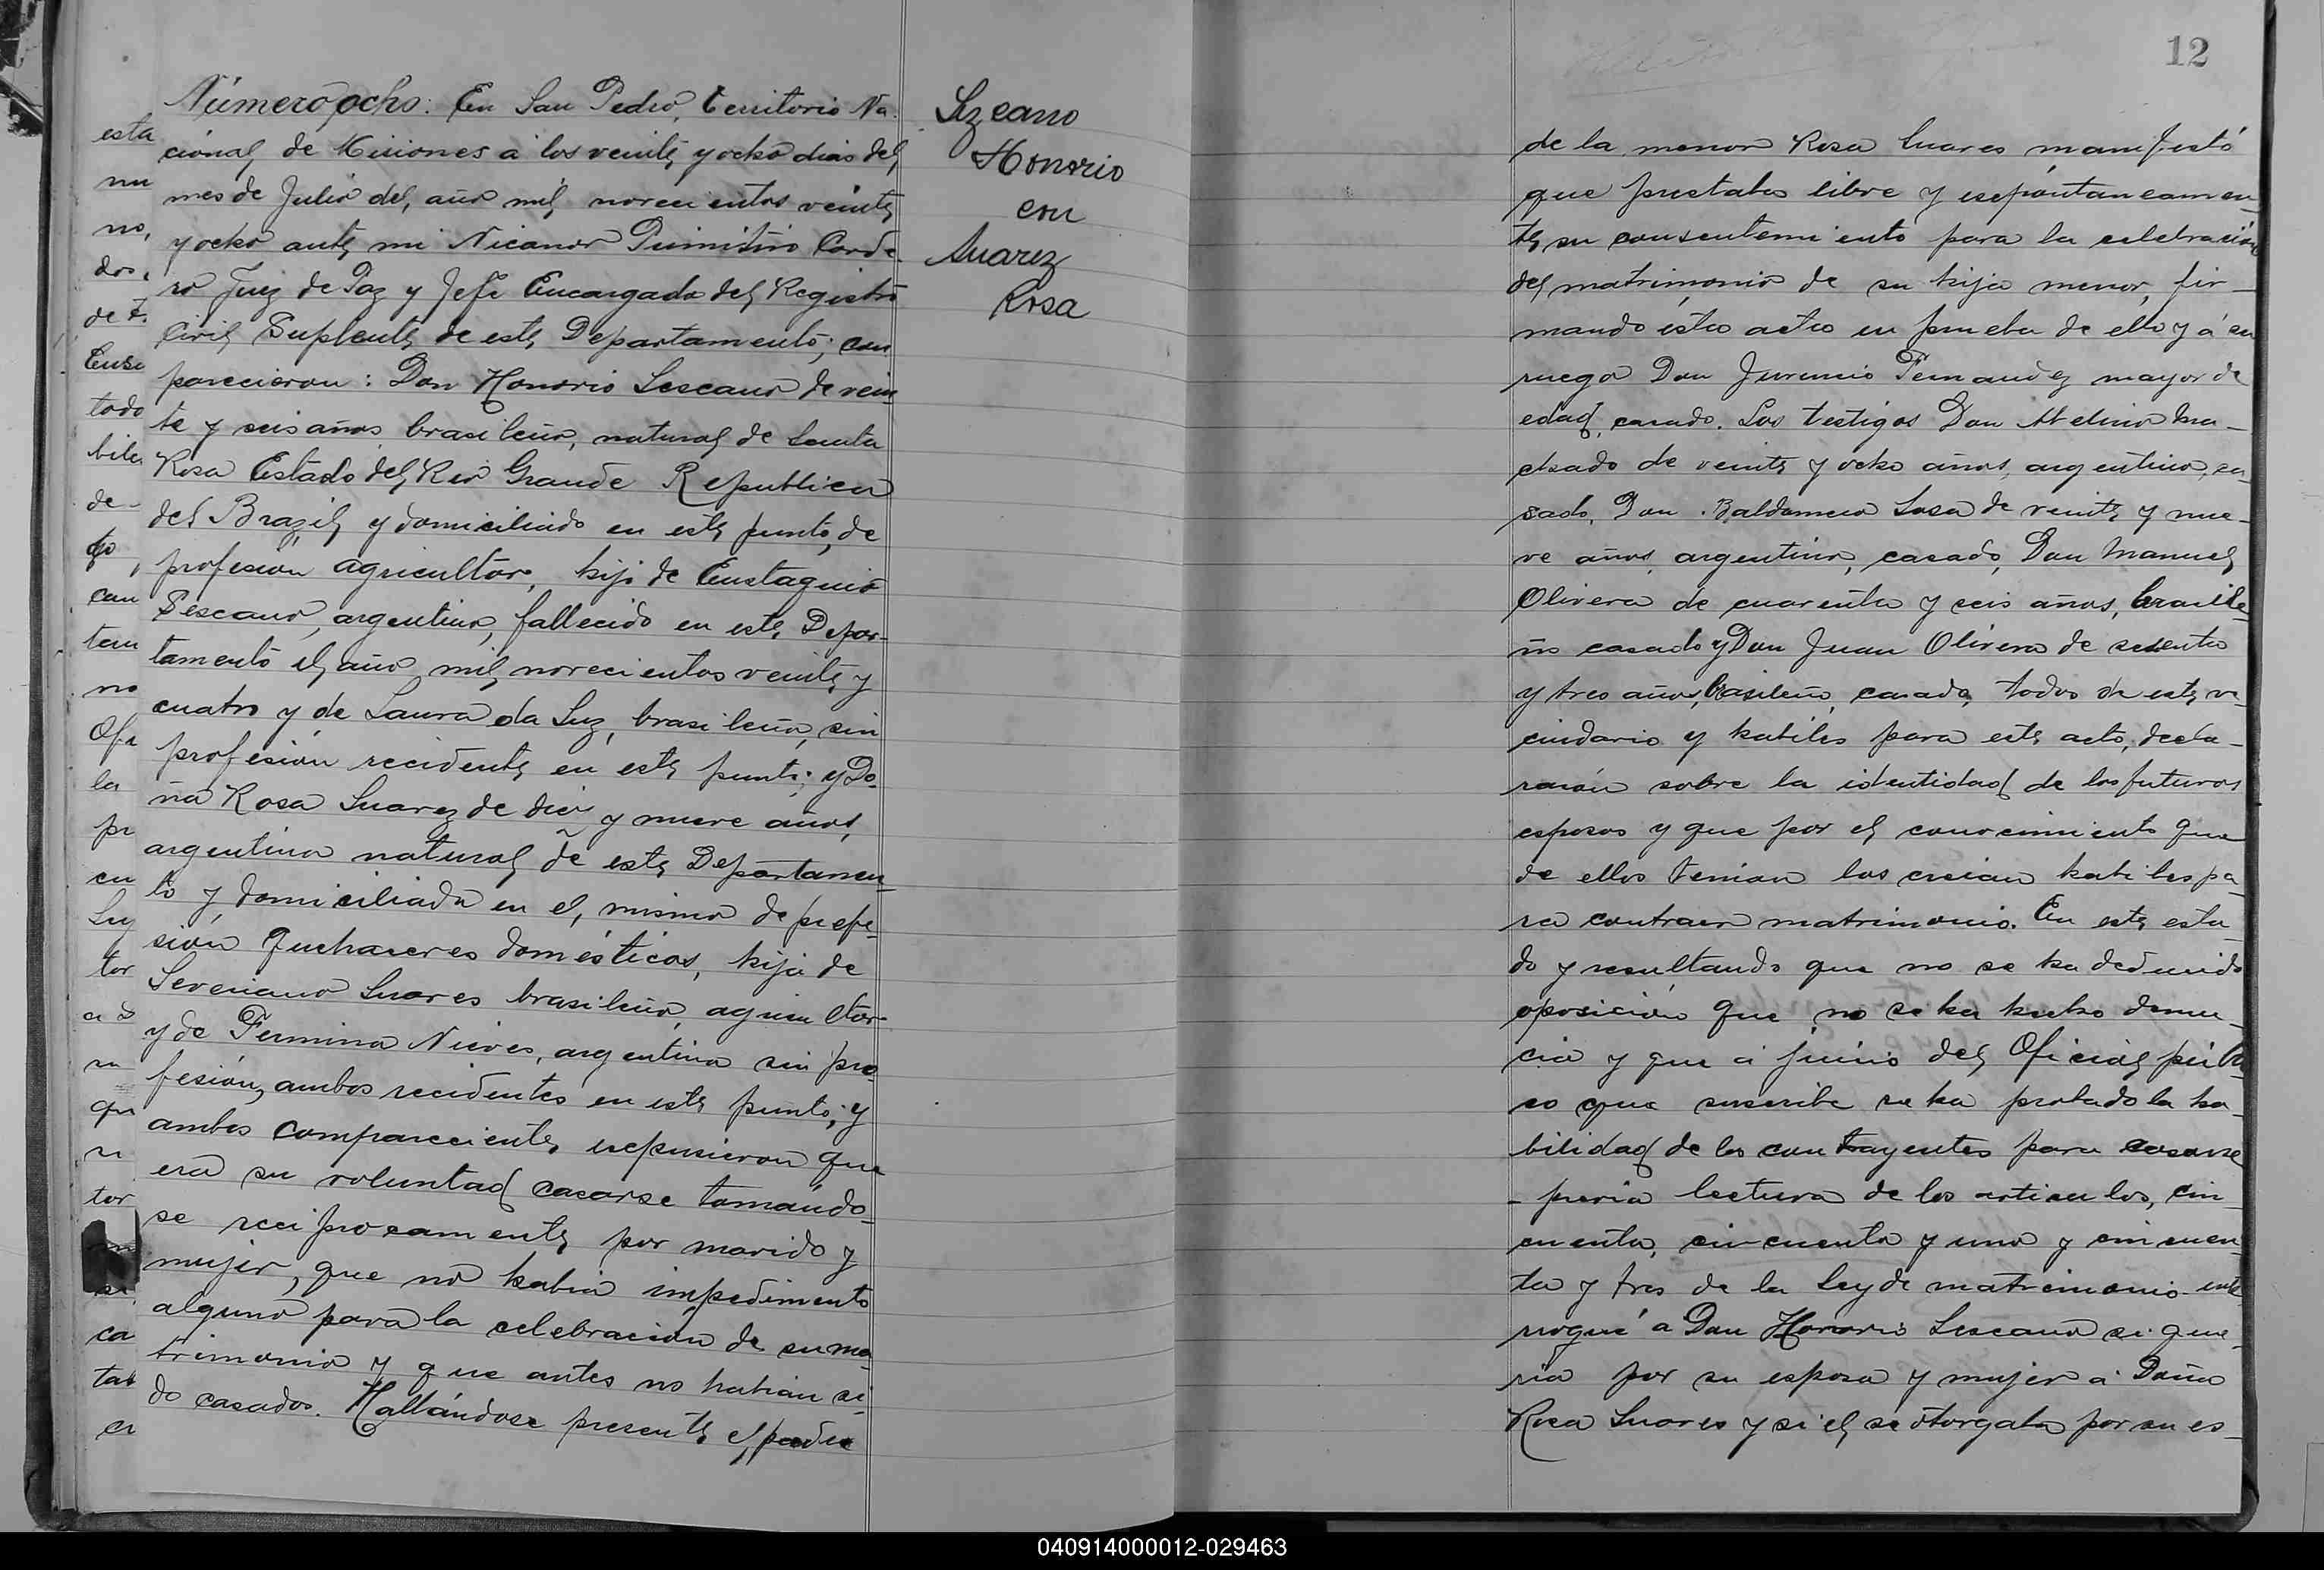 Número ocho: En San Pedro, territorio Na-
cional de Misiones a los veinte y ocho dias del
mes de Julio del año mil novecientos veinte
y ocho ante mi Nicanor Primitivo Corde-
ro Juez de Paz y Jefe Encargado del Registro
Civil Suplente de este Departamento; com
parecieron: Don Honorio Lescano de vein
te y seis años, brasileño, natural de Santa
Rosa Estado del Rio Grande Republica
del Brazil y domiciliado en este punto, de
profesión agricultor, hijo de Eustaquio
Lescano, argentino, fallecido en este Depar-
tamento el año mil novecientos veinte y
cuatro y de Laura da Luz, brasileña, sin
profesión recidente en este punto; y Do-
ña Rosa Suarez de diez y nueve años,
argentina natural de este Departamen-
to y domiciliada en el mismo de profe-
sión quehaceres domésticos, hija de
Severiano Suares brasileño, agricultor
y de Fermina Nieves, argentina sin pro-
fesión, ambos recidentes en este punto; y
ambos compareciente, expusieron que
era su voluntad casarse tomándo-
se reciprocamente por marido y
mujer, que no habia impedimento
alguno para la celebración de su ma-
trimonio y que antes no habian si-
do casados. Hallándose presente el padre
Lezcano
Honorio
con
Suarez
Rosa
esta
nu
no,
dos,
de
todo
de
can
ten
no
Ofi
la
pr
cu
Ley
tor
que
tor
ca
tas
12
de la menor Rosa Suares manifestó
que prestaba libre y espontaneamen-
te su consentemiento para la celebración
del matrimonio de su hija menor, fir-
mando esta acta en prueba de ello y á su
ruego Don Juvencio Fernandez mayor de
edad, casado. Los testigos Don Avelino Ma-
chado de veinte y ocho años, argentino, ca-
sado, Don Baldomero Sosa de veinte y nue-
ve años, argentino, casado, Don Manuel
Olivera de cuarenta y seis años, brasile-
ño casado y Don Juan Olivera de sesenta
y tres años, brasileño, casado, todos de este ve-
cindario y habiles para este acto, decla-
rarón sobre la identidad de los futuros
esposos y que por el conocimiento que
de ellos tenian los creian habiles pa-
ra contraer matrimonio. En este esta-
do y resultando que no se ha deducido
oposición que no se ha hecho denun-
cia y que a juicio del Oficial públi-
co que suscribe se ha probado la ha-
bilidad de los contrayentes para casarse
- previa lectura de los articulos, cin-
cuenta, cincuenta y uno y cincuen-
ta y tres de la Ley de matrimonio inte-
rrogué a Don Honorio Lescano si que-
ria por su esposa y mujer a Doña
Rosa Suares y si el se otorgaba por su es-
040914000012-029463